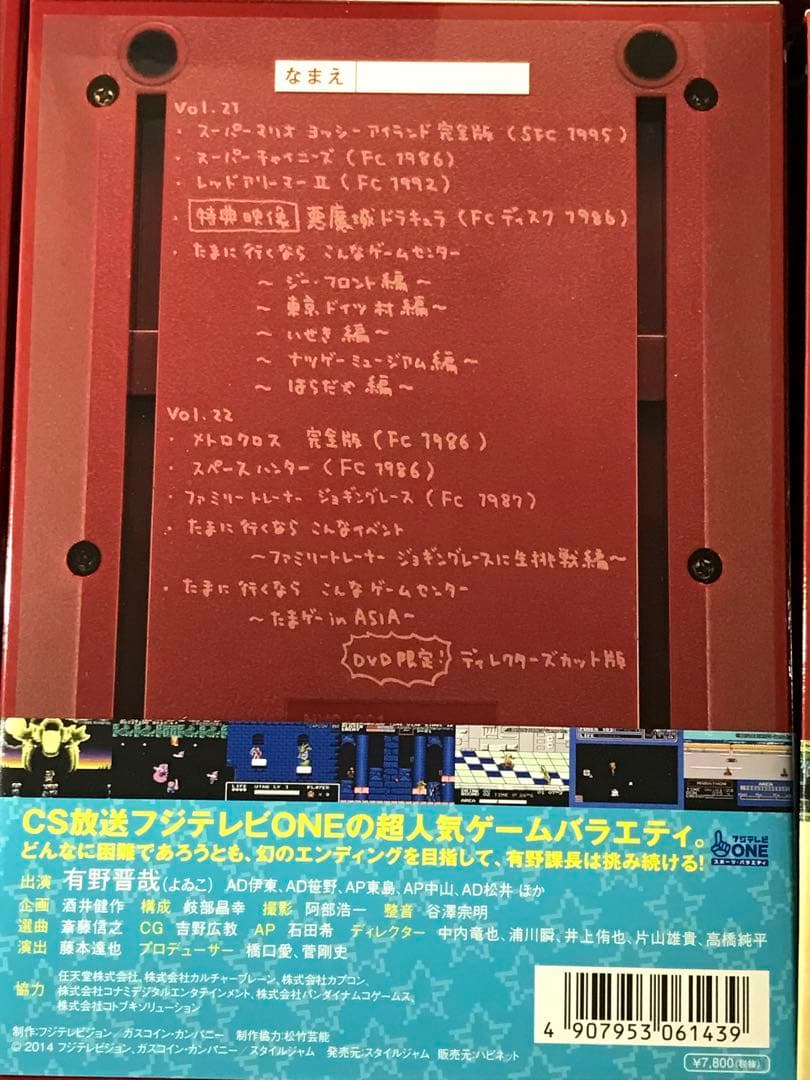 なまえ
Vol. 21
・スーパーマリオ ヨッシーアイランド 完全版 (SFC 1995)
・スーパーチャイニーズ (FC 1986)
・レッドアリーマーⅡ (FC 1992)
・特典映像 悪魔城ドラキュラ (FCディスク 1986)
・たまに行くなら こんなゲームセンター
～ジー・フロント編～
～東京ドイツ村編～
～いせき編～
～ナツゲーミュージアム編～
～はらだや編～
Vol. 22
・メトロクロス 完全版 (FC 1986)
・スペースハンター (FC 1986)
・ファミリートレーナー ジョギングレース (FC 1987)
・たまに行くなら こんなイベント
～ファミリートレーナー ジョギングレースに生挑戦編～
・たまに行くなら こんなゲームセンター
～たまゲー in ASIA～
DVD限定! ディレクターズカット版
CS放送フジテレビONEの超人気ゲームバラエティ。
どんなに困難であろうとも、幻のエンディングを目指して、有野課長は挑み続ける!
フジテレビ
ONE
スポーツ・バラエティ
出演 有野晋哉(よゐこ) AD伊東、AD笹野、AP東島、AP中山、AD松井 ほか
企画 酒井健作 構成 岐部昌幸 撮影 阿部浩一 整音 谷澤宗明
選曲 斎藤信之 CG 吉野広教 AP 石田希 ディレクター 中内竜也、浦川瞬、井上侑也、片山雄貴、高橋純平
演出 藤本達也 プロデューサー 橋口愛、菅剛史
協力 任天堂株式会社、株式会社カルチャーブレーン、株式会社カプコン、
株式会社コナミデジタルエンタテインメント、株式会社バンダイナムコゲームス、
株式会社コトブキソリューション
制作:フジテレビジョン ガスコイン・カンパニー 制作協力:松竹芸能
©2014 フジテレビジョン、ガスコイン・カンパニー スタイルジャム 発売元:スタイルジャム 販売元:ハピネット
4 907953 061439
¥7,800(税抜)